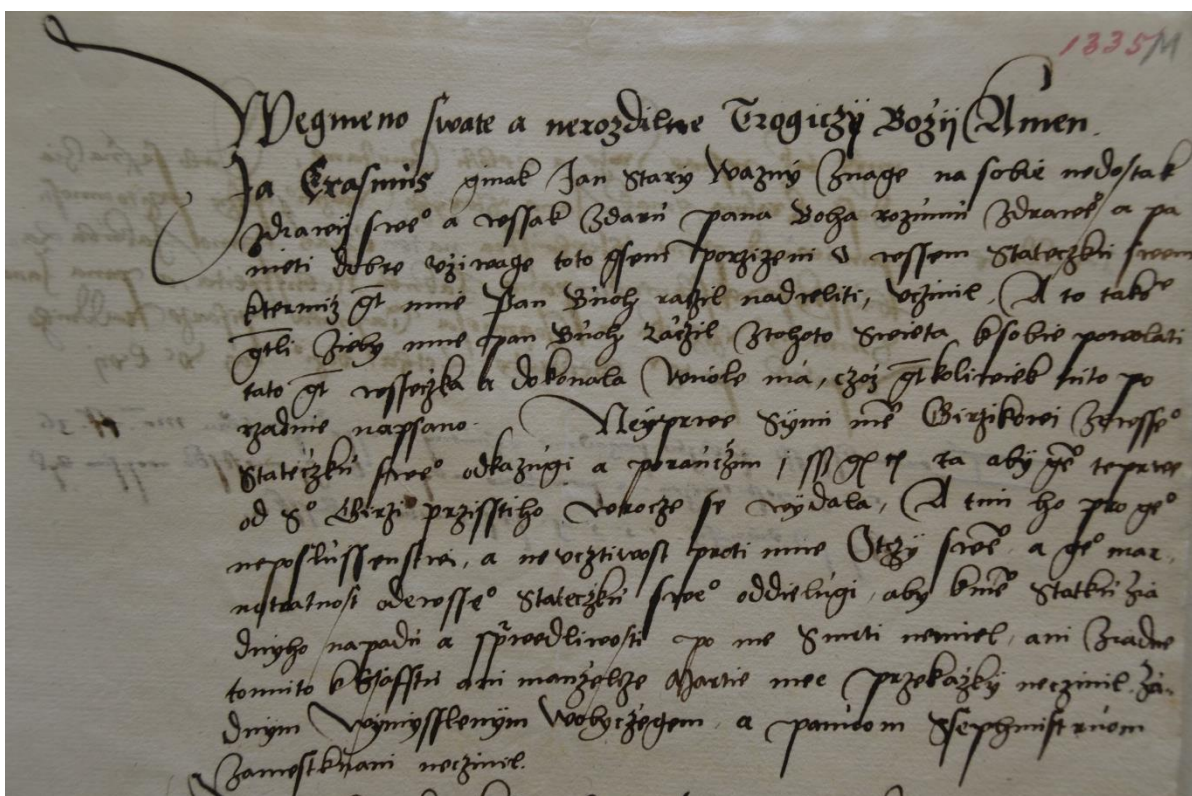 1335/M
Wegmeno swate a nerozdilne Trogiczy Bozij Amen.
Ja Erasmus gmak Jan Stary Wazny Znage na sobie nedostak
zdrawij swe° a wssak Zdaru pana Boha rozumu Zdrawe° a pa
mieti dobre uziwage toto gsem porzizeni o wssem Stateczku swem
kterimz gt mne Pan Buoh raczil nadieliti, uczinil, A to take
gtli Zieby mne pan Buoh Raczil Ztohoto Swieta ksobie powolati
tato gt wsseczka a dokonala Wuole ma, czoz gt koliwiek tuto po
rzadnie napsano. Neyprwe Synu mé Girzikowi Zewsse°
Stateczku swe° odkazugi a porauczim ta aby gé teprwe
od S° Girzi° przisstiho Worocze se wydala, A tim ho pro ge°
neposlussenstwi, a neucztiwost proti mne Otczy swé, a ge° mar,
notratnost odewsse° Stateczku swe° oddielugi, aby kmé Statku Zia
dnyho napadu a sprwedliwosti po me Smrti nemiel, ani Ziadne
tomuto kSsafftu ani manzelcze Martie mee przekazky neczinil Za-
dnym Wymysslenym Wobyczegem, a panuom Ssephmistruom
Zamestknani neczinil.